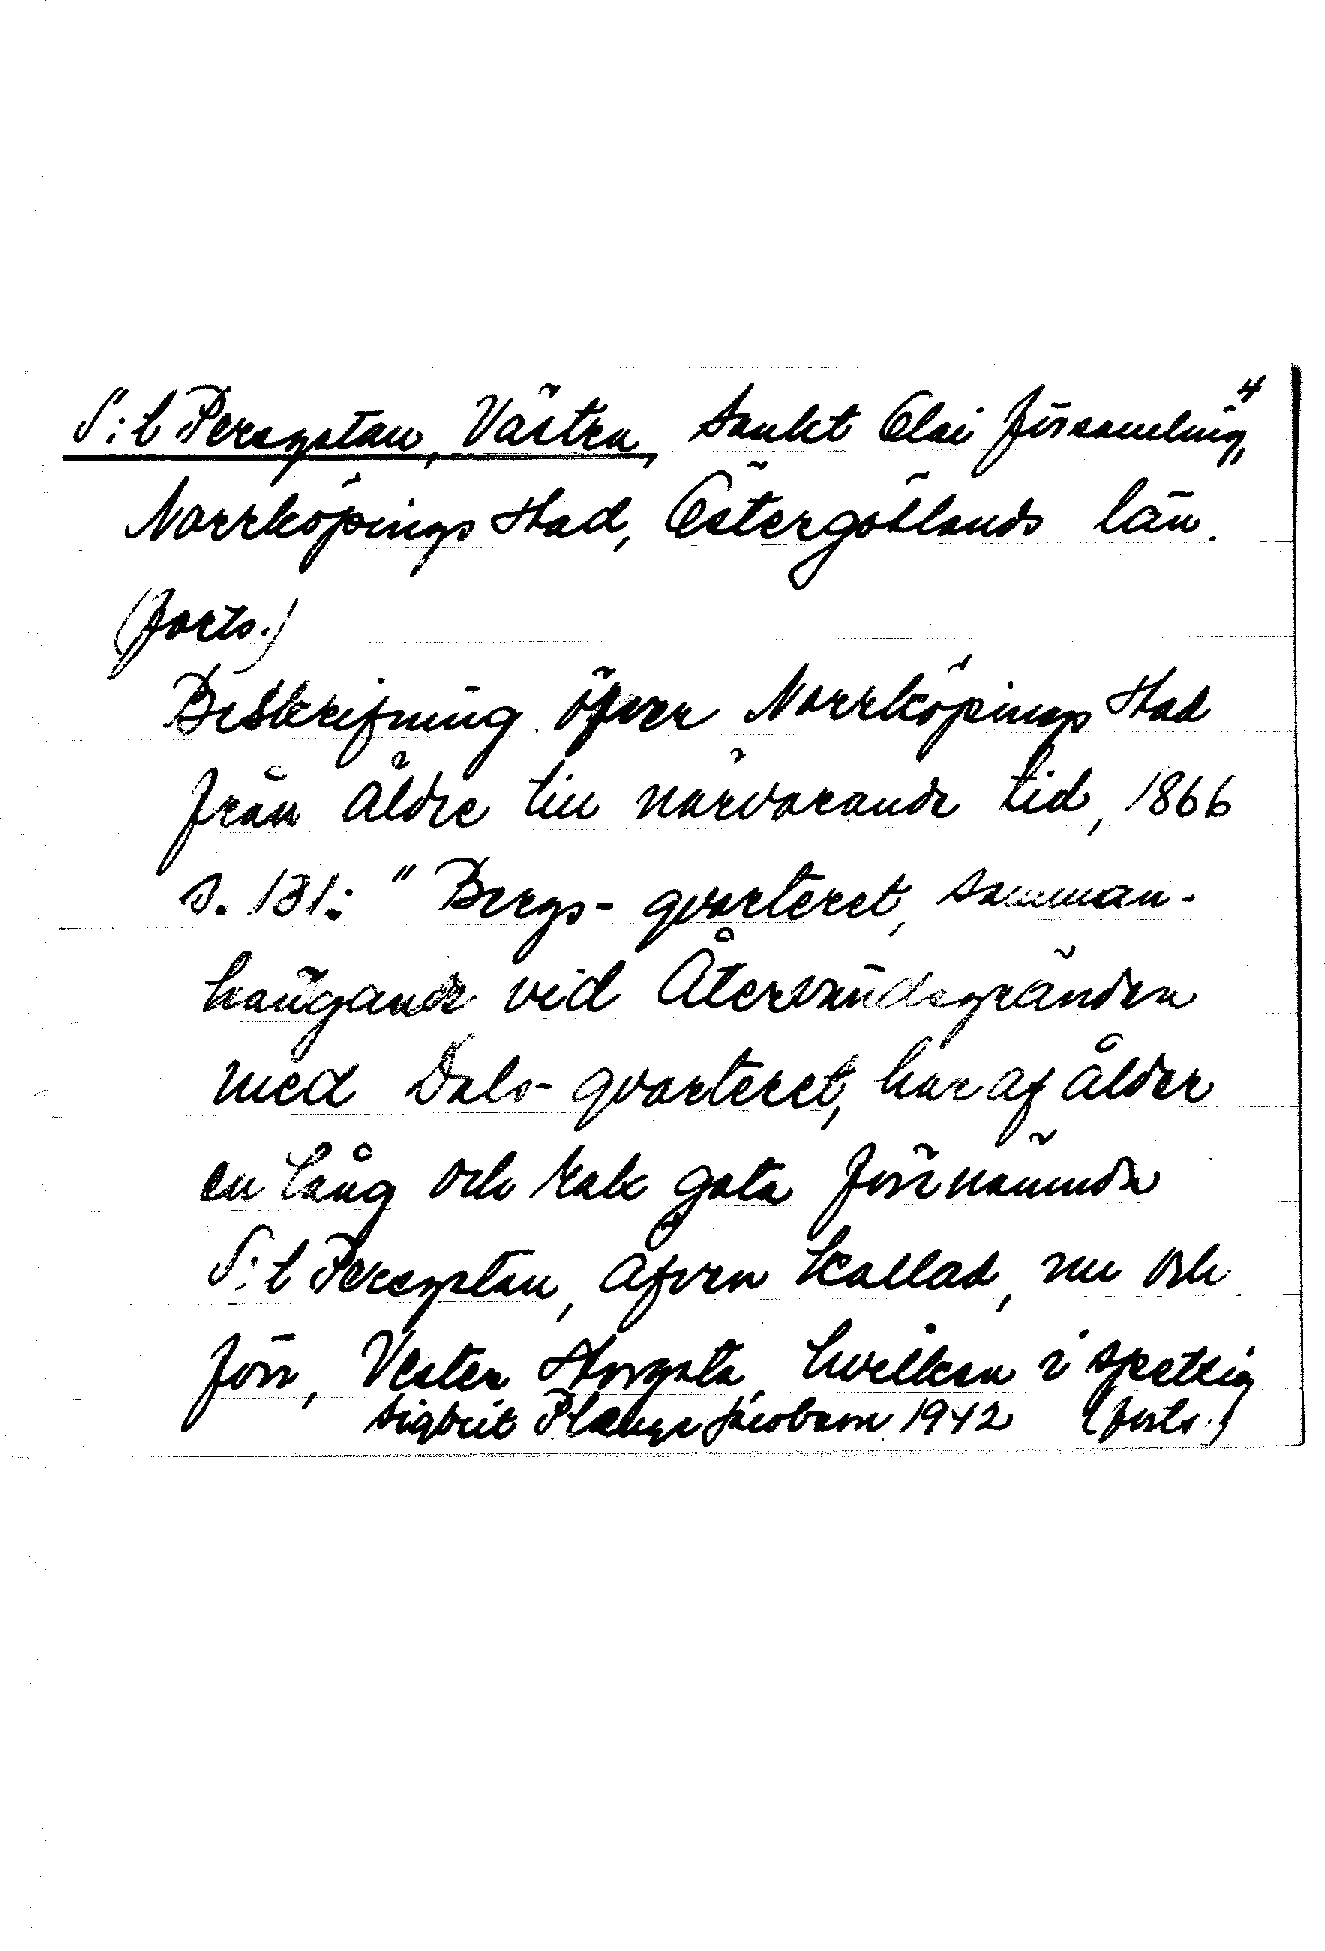 4
S:t Persgatan, Västra, Sankt Olai församling,
Norrköpings stad, Östergötlands län.
(forts.)
Beskrifning öfver Norrköpings stad
från äldre till närvarande tid, 1866
s. 131: "Bergs-qvarteret, samman-
hängande vid Återvändsgränden
med Dals-qvarteret, har af ålder
en lång och rak gata förnämnda
S:t Persgatan, äfven kallad, nu och
förr, Vester Storgata, hvilken i spetsig
Sigbrit Plænge Jacobson 1942 (forts.)